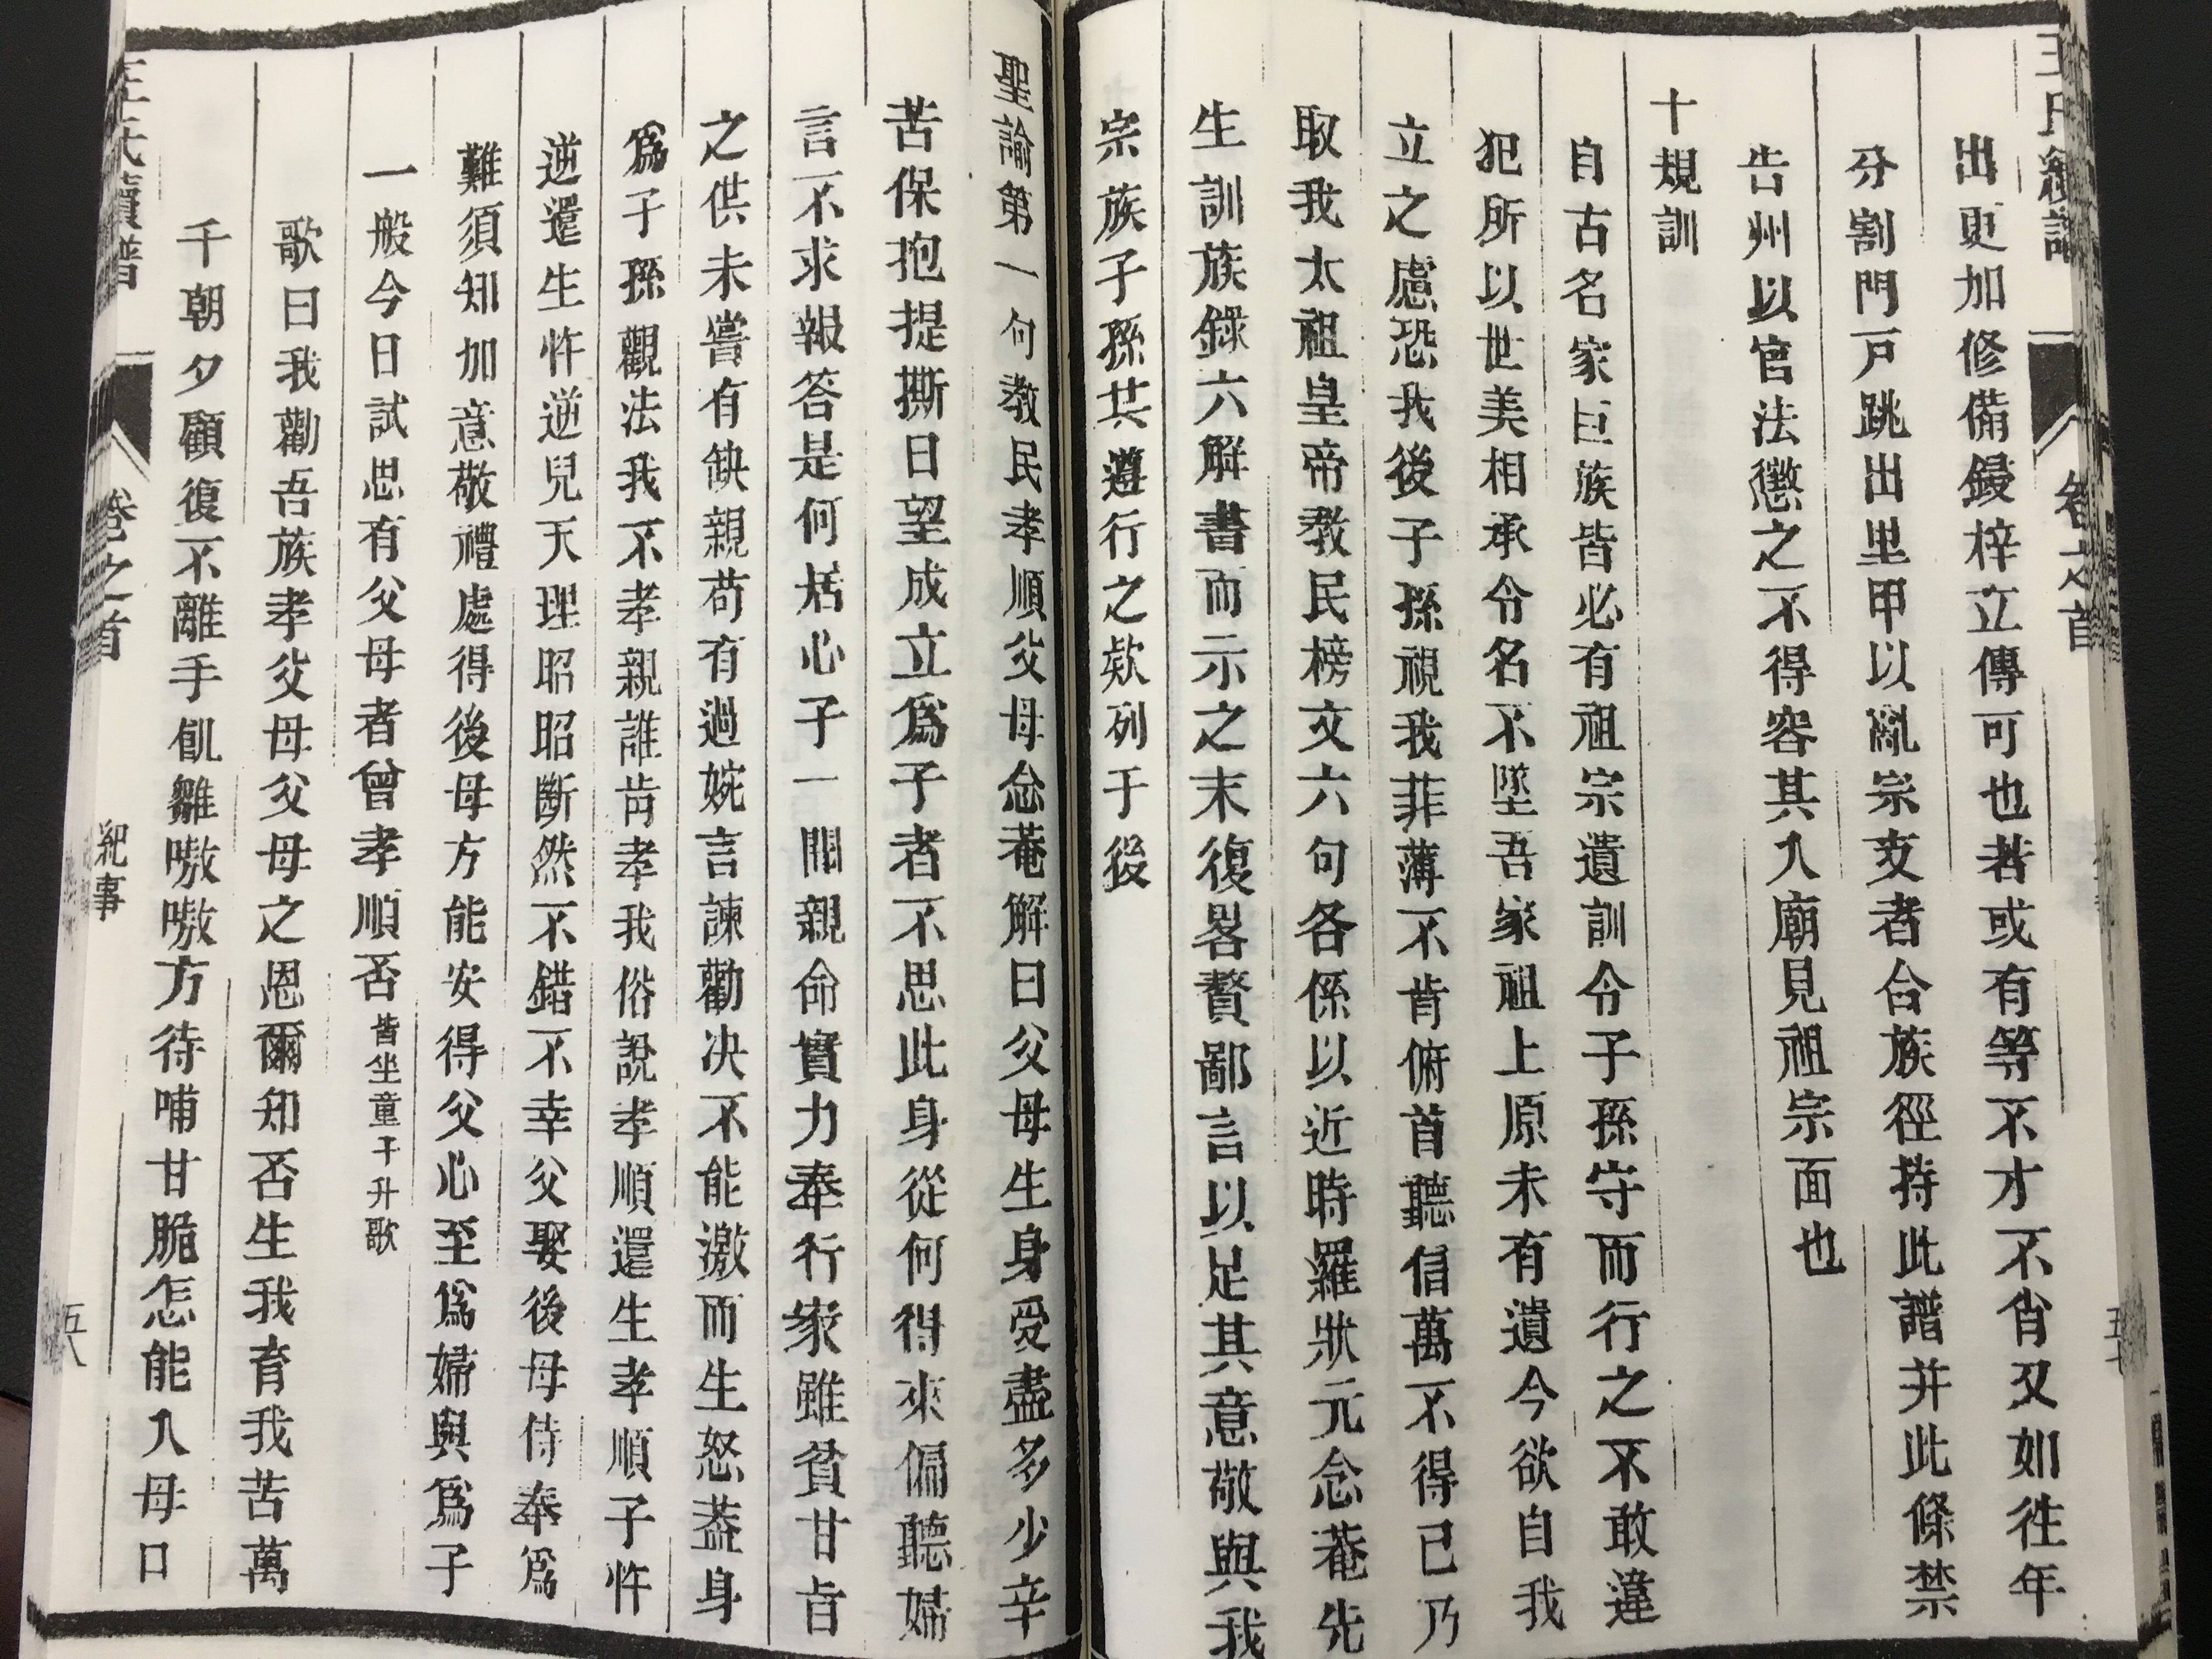 出更加修備鋟梓立傳可也若或有等不才不肖又如徃年
分割門戸跳出里甲以亂宗支者合族徑持此譜并此條禁
告州以官法懲之不得容其入廟見祖宗面也
十規訓
自古名家巨族皆必有祖宗遺訓令子孫守而行之不敢違
犯所以世美相承令名不墜吾家祖上原未有遺今欲自我
立之慮恐我後子孫視我菲薄不肯俯首聽信萬不得已乃
取我太祖皇帝教民榜文六句各係以近時羅狀元念菴先
生訓族錄六解書而示之末復畧贅鄙言以足其意敬與我
宗族子孫共遵行之欵列于後
聖諭第一句教民孝順父母念菴解曰父母生身受盡多少辛
苦保抱提撕日望成立爲子者不思此身從何得來偏聽婦
言不求報答是何居心子一聞親命實力奉行家雖貧甘旨
之供未嘗有缺親苟有過婉言諫勸决不能激而生怒葢身
爲子孫觀法我不孝親誰肯孝我俗說孝順還生孝順子忤
逆還生忤逆兒天理昭昭斷然不錯不幸父娶後母侍奉爲
難須知加意敬禮處得後母方能安得父心至爲婦與爲子
一般今日試思有父母者曾孝順否皆坐童子升歌
歌曰我勸吾族孝父母父母之恩爾知否生我育我苦萬
千朝夕顧復不離手飢雛嗷嗷方待哺甘脆怎能入母口
王氏續譜 卷之首 紀事 五八